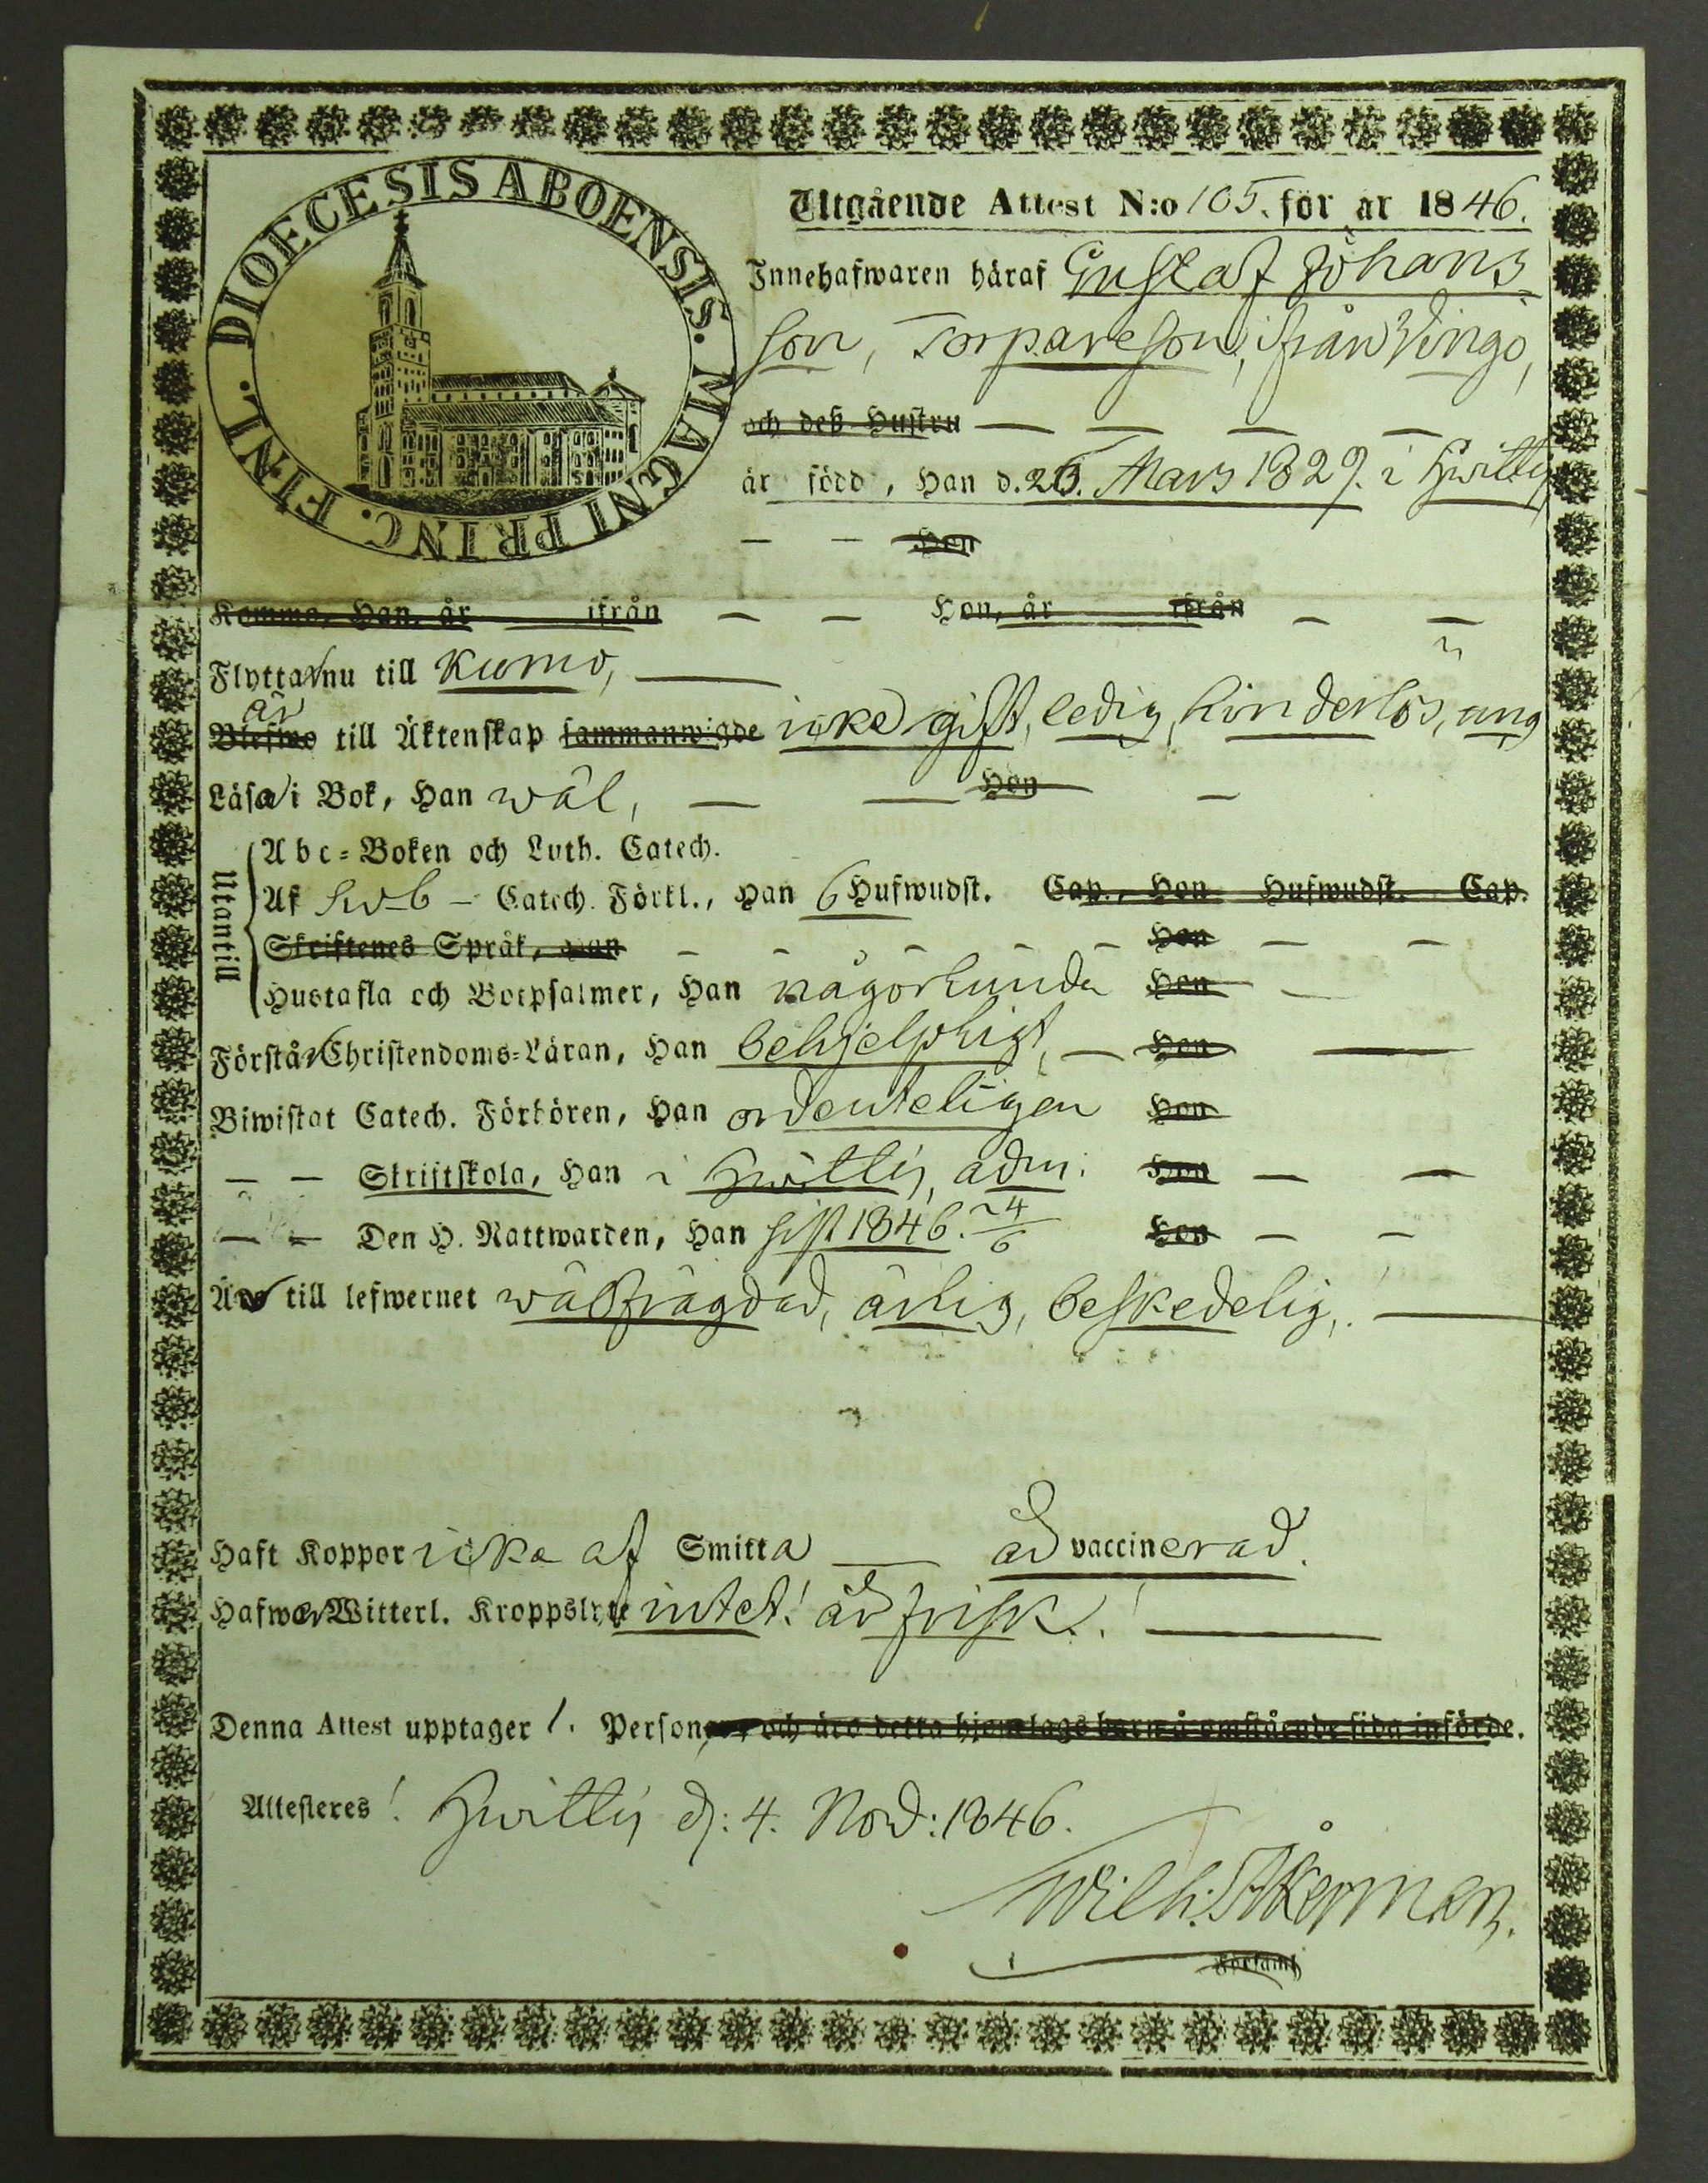 DIOECESIS ABOENSIS. MAGNI PRINC. FINL.
Utgående Attest N:o 105. för år 1846.
Innehafwaren häraf Gustaf Johans
son, Torpareson, ifrån Wingo,
och deß Hustru — — — —
är född, Han d. 26. Mars 1829. i Hwittis
— — Hon
Komne, Han, år ifrån — — Hon, år ifrån — —
Flyttar nu till Kumo, —
är
Blefwo till Äktenskap sammanwigde icke gift, ledig, hinderlös, ung
Läsa i Bok, Han wäl, — — Hon —
Utantill
Abc-Boken och Luth. Catech.
Af Svb — Catech. Förkl., Han 6 Hufwudst. Cap., Hon Hufwudst. Cap.
Skriftenes Språk, Han — — — Hon — —
Hustafla och Botpsalmer, Han någorlunda Hon —
Förstår Christendoms-Läran, Han behjelpligt, — Hon —
Biwistat Catech. Förhören, Han ordenteligen Hon
— — Skriftskola, Han i Hwittis, adm: Hon — —
— — Den H. Nattwarden, Han sist 1846. 24/6 Hon — —
Är till lefwernet wälfrägdad, ärlig, beskedelig, —
Haft Koppor icke af Smitta — är vaccinerad.
Hafwer Witterl. Kroppslyte intet! är frisk! —
Denna Attest upptager 1. Personer, och äro detta hjonelags barn å omstående sida införde.
Attesteres! Hwittis d: 4. Nov: 1846.
Wilh: Åkerman.